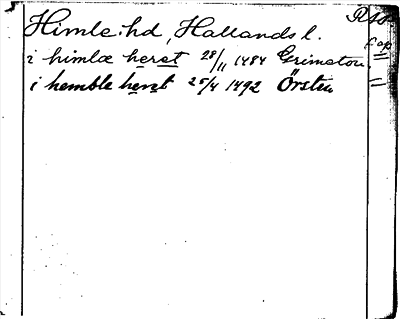 Himle hd, Hallands l.
i himlæ heret 28/11 1484 Grimeton.
i hemble heret 25/4 1492 Örsten